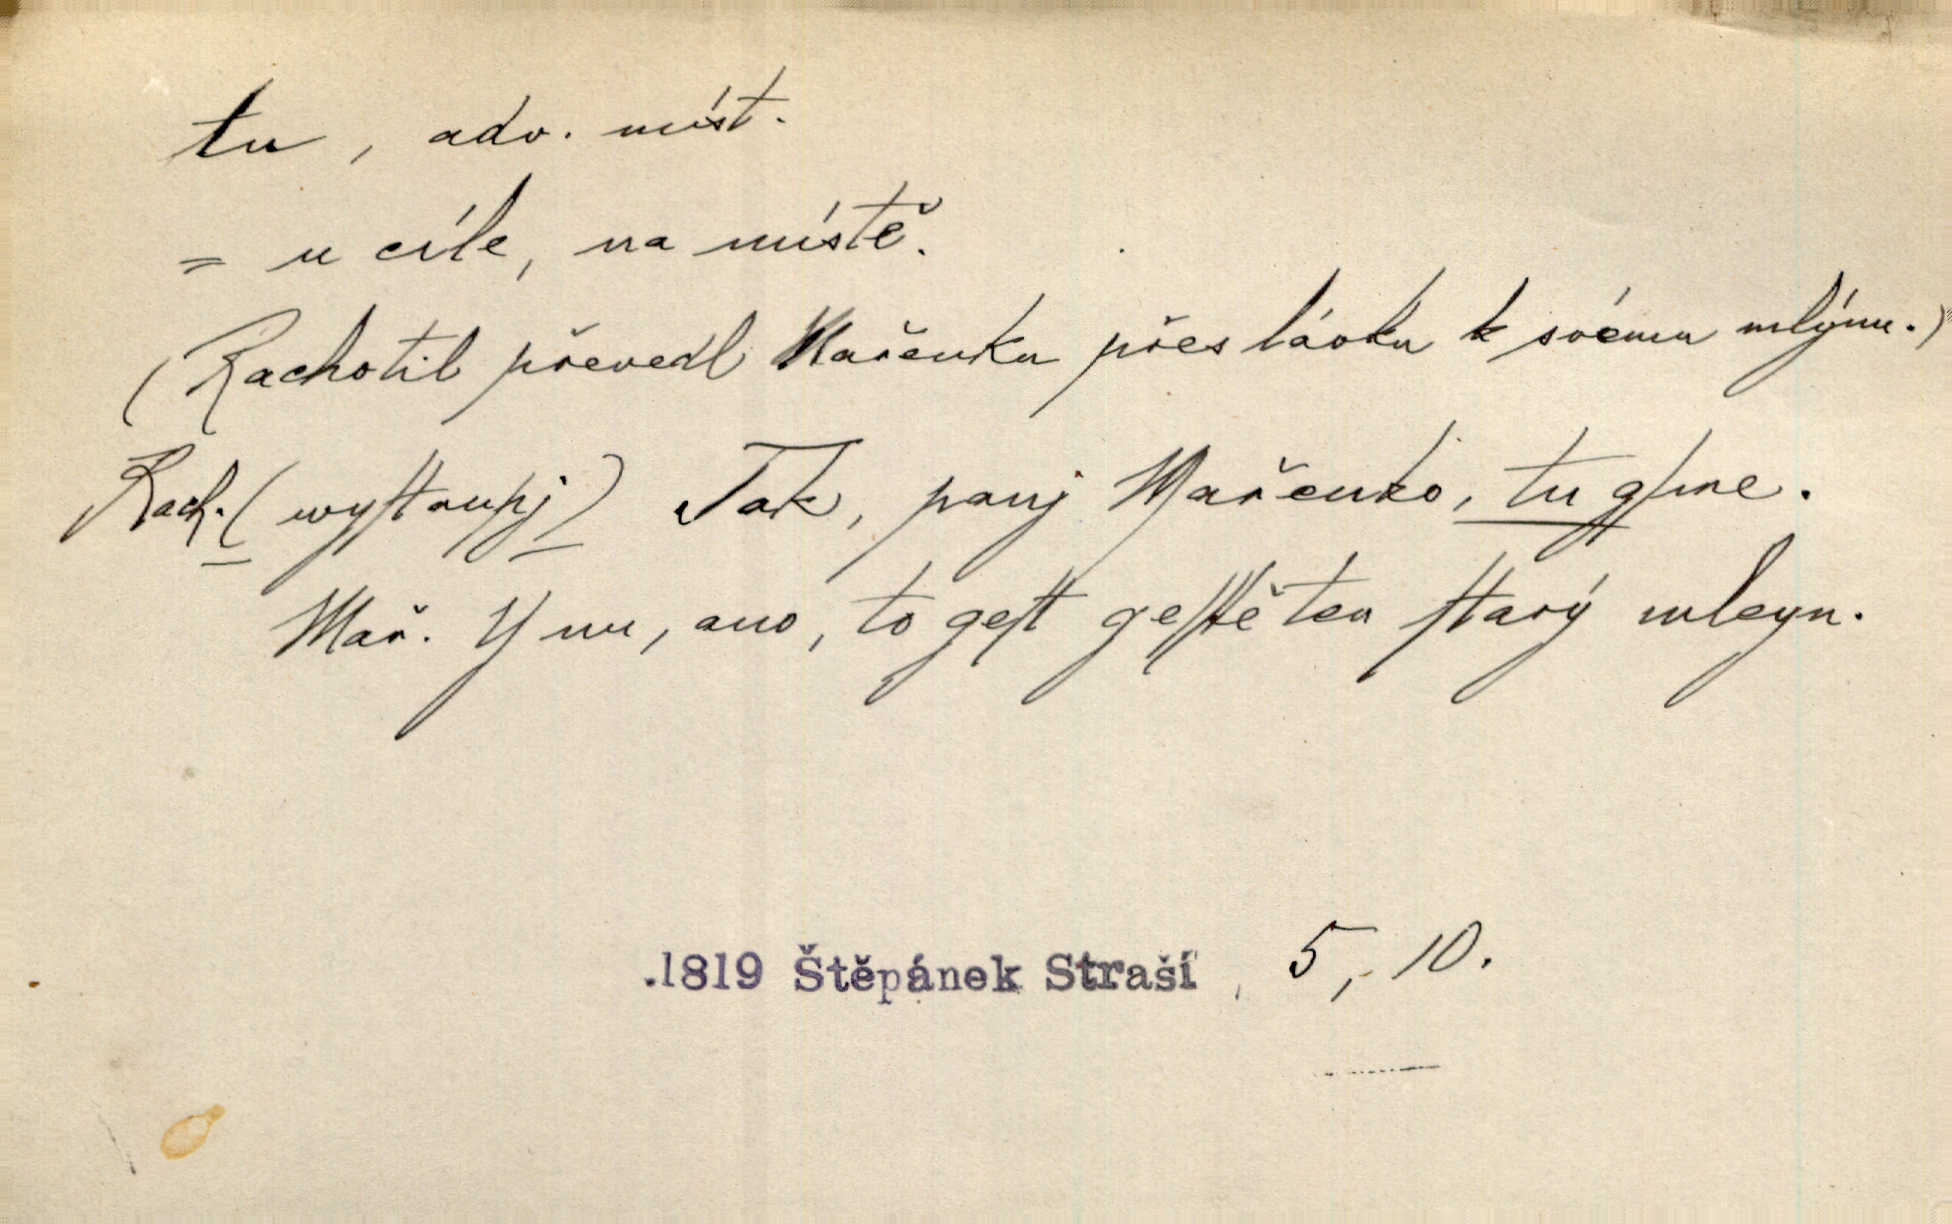 tu, adv. míst.
= u cíle, na místě.
(Rachotil převedl Mařenku přes lávku k svému mlýnu.)
Rach. (wyſtaupj) Tak, panj Mařenko, tu gſme.
Mař. Y nu, ano, to geſt geſſtě ten ſtarý mleyn.
.1819 Štěpánek Straší, 5, 10.